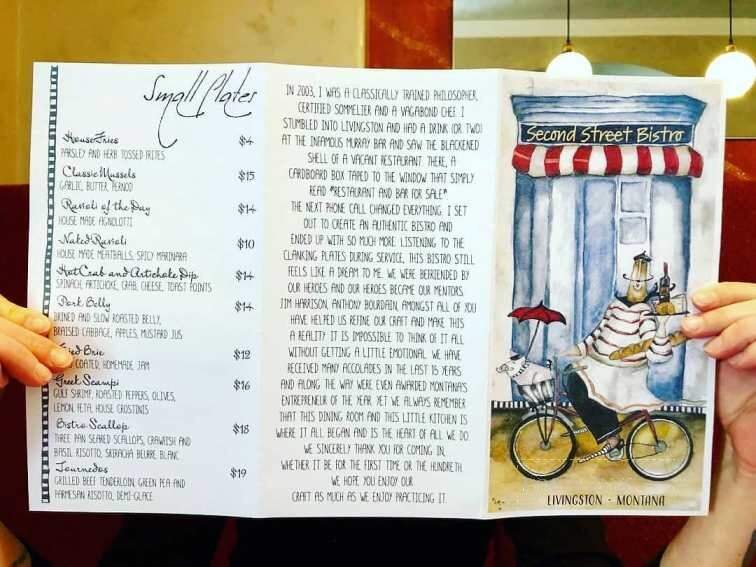 Small Plates
House Fries $4
PARSLEY AND HERB TOSSED FRITES
Classic Mussels $15
GARLIC, BUTTER, PERNOD
Ravioli of the Day $14
HOUSE MADE AGNOLOTTI
Naked Ravioli $10
HOUSE MADE MEATBALLS, SPICY MARINARA
Hot Crab and Artichoke Dip $14
SPINACH, ARTICHOKE, CRAB, CHEESE, TOAST POINTS
Pork Belly $14
BRINED AND SLOW ROASTED BELLY,
BRAISED CABBAGE, APPLES, MUSTARD JUS
Brie $12
COATED, HOMEMADE JAM
Greek Scampi $16
GULF SHRIMP, ROASTED PEPPERS, OLIVES,
LEMON FETA, HOUSE CROSTINIS
Bistro Scallop $18
THREE PAN SEARED SCALLOPS, CRAWFISH AND
BASIL RISOTTO, SRIRACHA BEURRE BLANC
Tournedos $19
GRILLED BEEF TENDERLOIN, GREEN PEA AND
PARMESAN RISOTTO, DEMI-GLACE
IN 2003, I WAS A CLASSICALLY TRAINED PHILOSOPHER,
CERTIFIED SOMMELIER AND A VAGABOND CHEF. I
STUMBLED INTO LIVINGSTON AND HAD A DRINK (OR TWO)
AT THE INFAMOUS MURRAY BAR AND SAW THE BLACKENED
SHELL OF A VACANT RESTAURANT. THERE, A
CARDBOARD BOX TAPED TO THE WINDOW THAT SIMPLY
READ "RESTAURANT AND BAR FOR SALE".
THE NEXT PHONE CALL CHANGED EVERYTHING. I SET
OUT TO CREATE AN AUTHENTIC BISTRO AND
ENDED UP WITH SO MUCH MORE. LISTENING TO THE
CLANKING PLATES DURING SERVICE, THIS BISTRO STILL
FEELS LIKE A DREAM TO ME. WE WERE BEFRIENDED BY
OUR HEROES AND OUR HEROES BECAME OUR MENTORS.
JIM HARRISON, ANTHONY BOURDAIN, AMONGST ALL OF YOU
HAVE HELPED US REFINE OUR CRAFT AND MAKE THIS
A REALITY! IT IS IMPOSSIBLE TO THINK OF IT ALL
WITHOUT GETTING A LITTLE EMOTIONAL. WE HAVE
RECEIVED MANY ACCOLADES IN THE LAST 15 YEARS
AND ALONG THE WAY WERE EVEN AWARDED MONTANA'S
ENTREPRENEUR OF THE YEAR YET WE ALWAYS REMEMBER
THAT THIS DINING ROOM AND THIS LITTLE KITCHEN IS
WHERE IT ALL BEGAN AND IS THE HEART OF ALL WE DO.
WE SINCERELY THANK YOU FOR COMING IN,
WHETHER IT BE FOR THE FIRST TIME OR THE HUNDRETH.
WE HOPE YOU ENJOY OUR
CRAFT AS MUCH AS WE ENJOY PRACTICING IT.
Second Street Bistro
LIVINGSTON - MONTANA